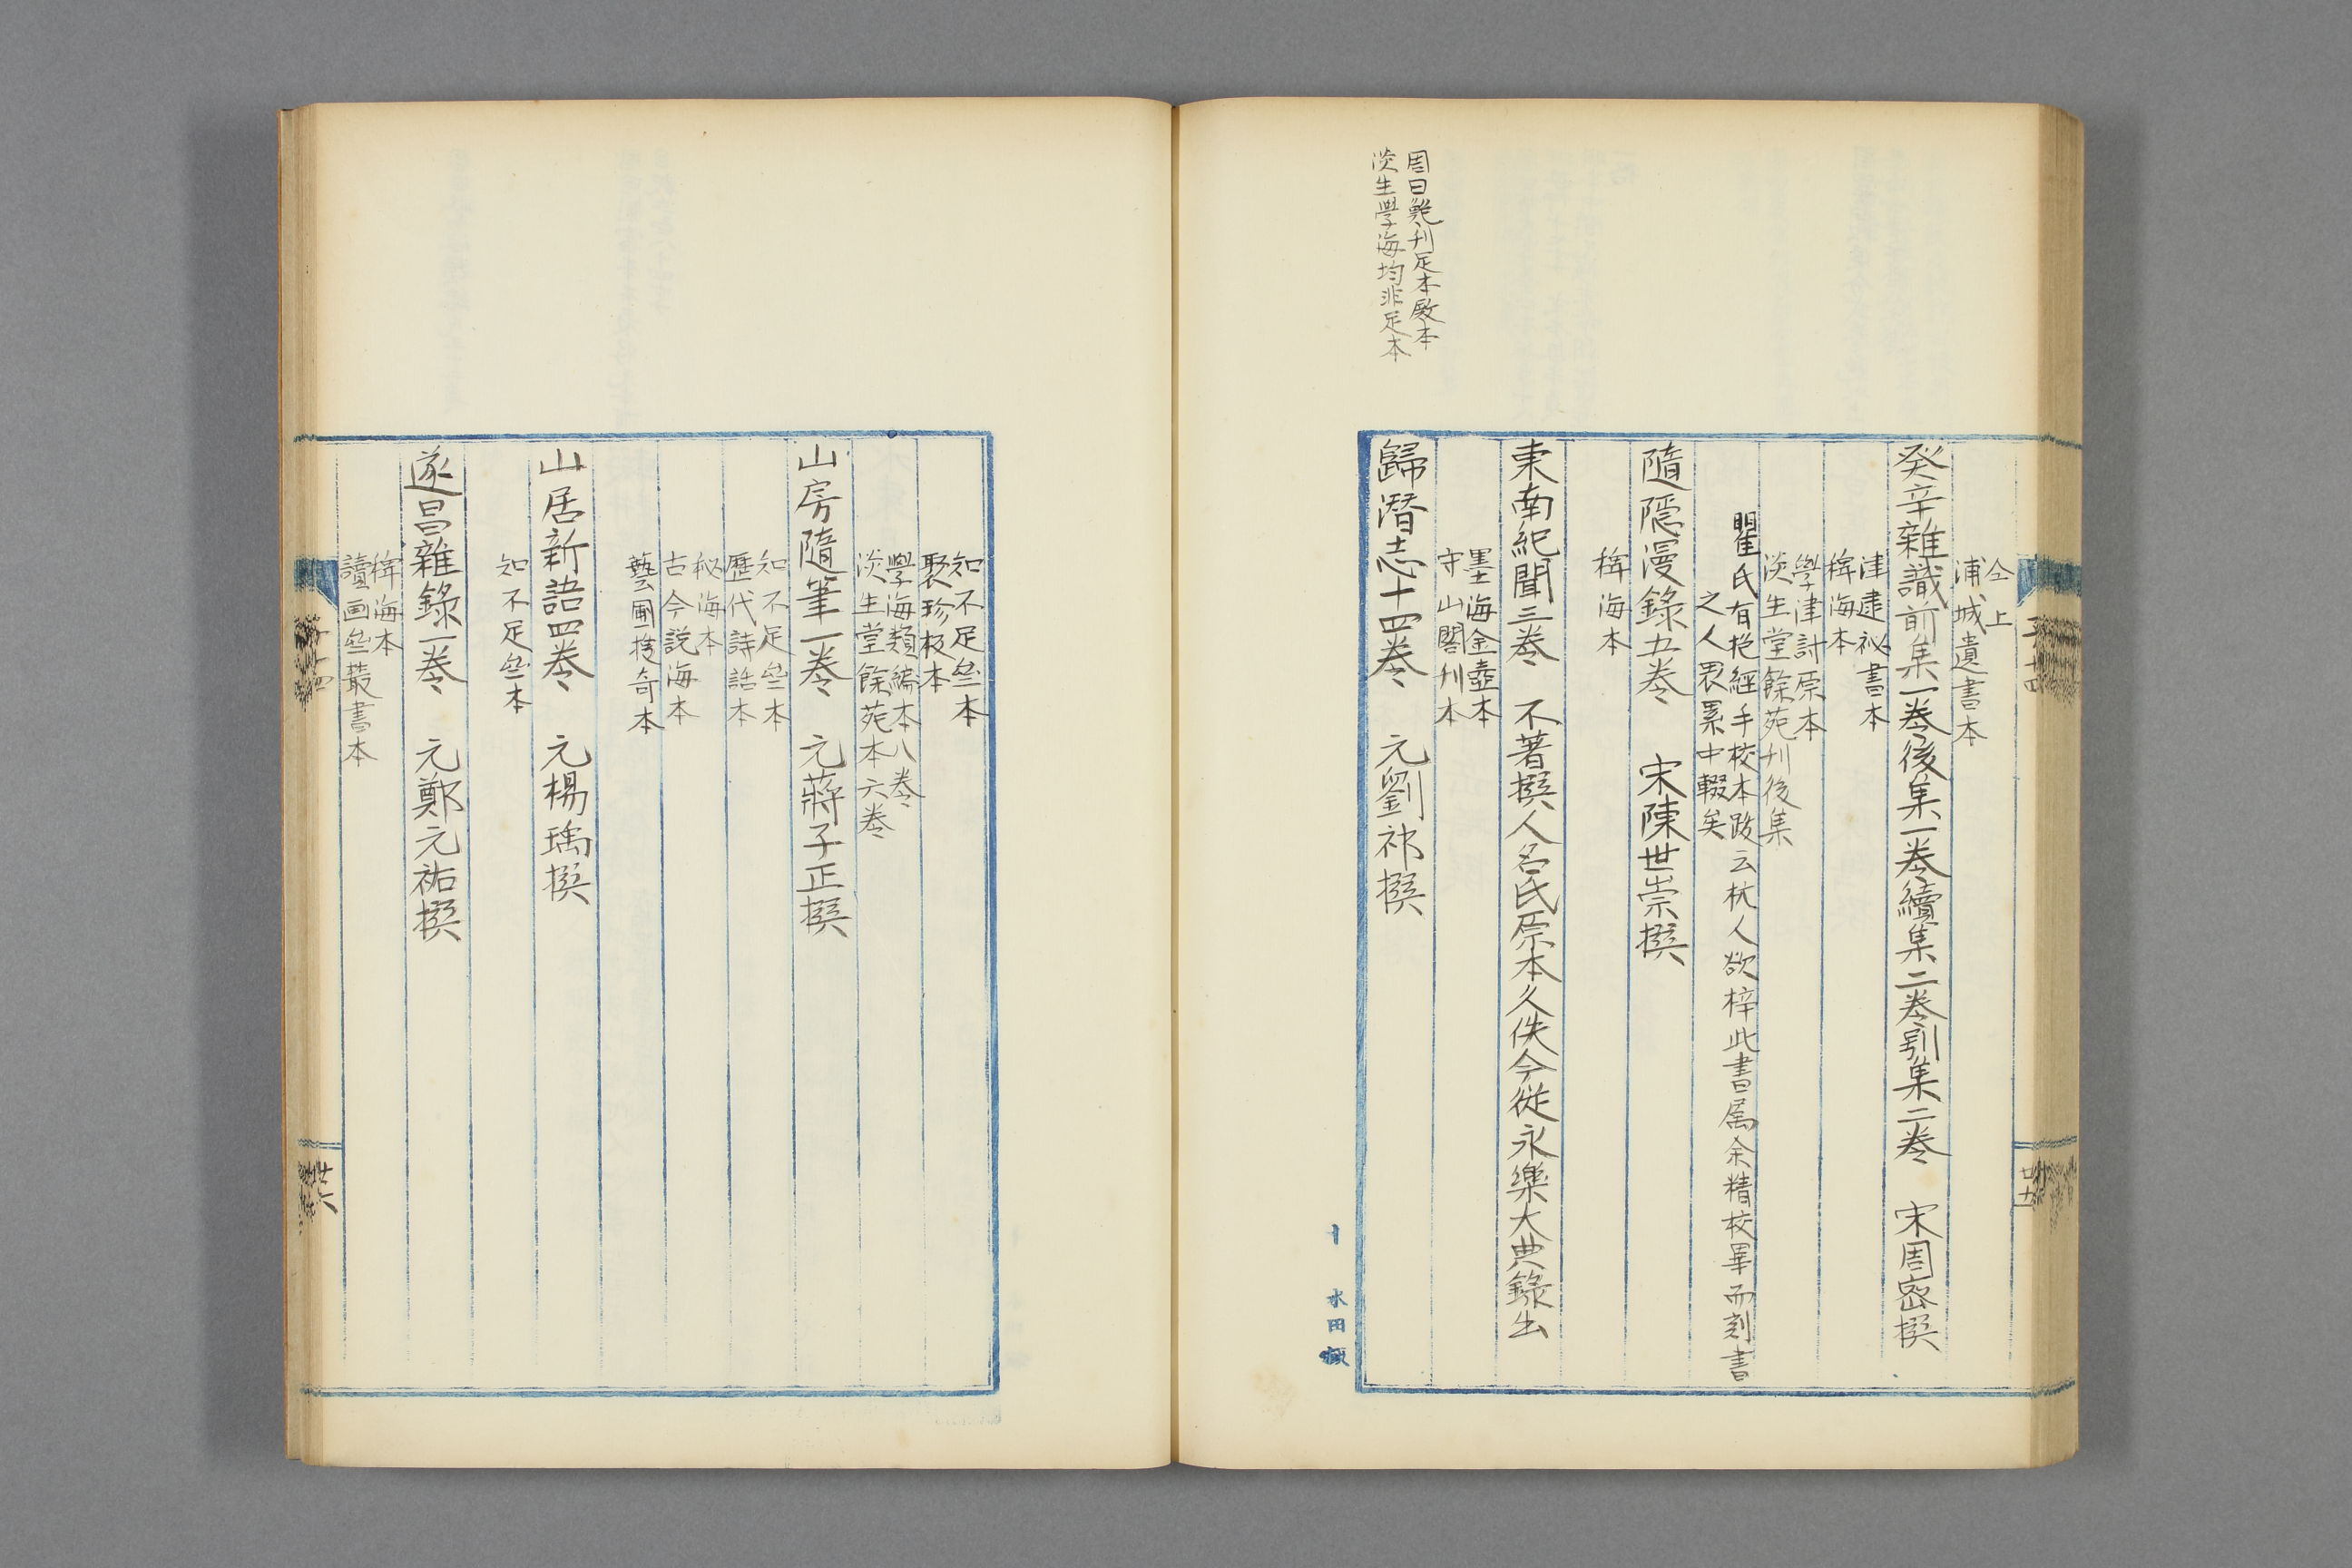 仝上
浦城遺書本
癸辛雜識前集一卷後集一卷續集二卷別集二卷　宋周密撰
津逮祕書本
稗海本
學津討原本
淡生堂餘苑刊後集
瞿氏有抱經手校本跋云杭人欲梓此書属余精校畢而刻書
之人罣累中輟矣
隨隱漫錄五卷　宋陳世崇撰
稗海本
東南紀聞三卷　不著撰人名氏原本久佚今從永樂大典錄出
墨海金壺本
守山閣刊本
周曰
刊足本殿本
淡生學海均非足本
歸潛志十四卷　元劉祁撰
水田
知不足亝本
聚珍板本
學海類編本八卷
淡生堂餘苑本六卷
山房隨筆一卷　元蔣子正撰
知不足亝本
歷代詩話本
秘海本
古今説海本
藝圃搜奇本
山居新語四卷　元楊瑀撰
知不足亝本
遂昌雜錄一卷　元鄭元祐撰
稗海本
讀画亝叢書本
廿六